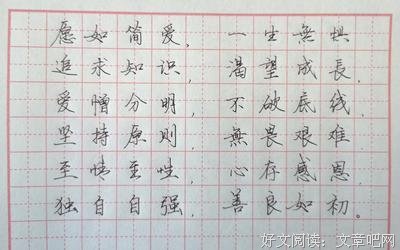 愿如简爱，一生無惧
追求知识，渴望成長，
爱憎分明，不破底线，
坚持原则，無畏艰难
至情至性，心存感恩，
独自自强，善良如初。
好文阅读：文章吧网